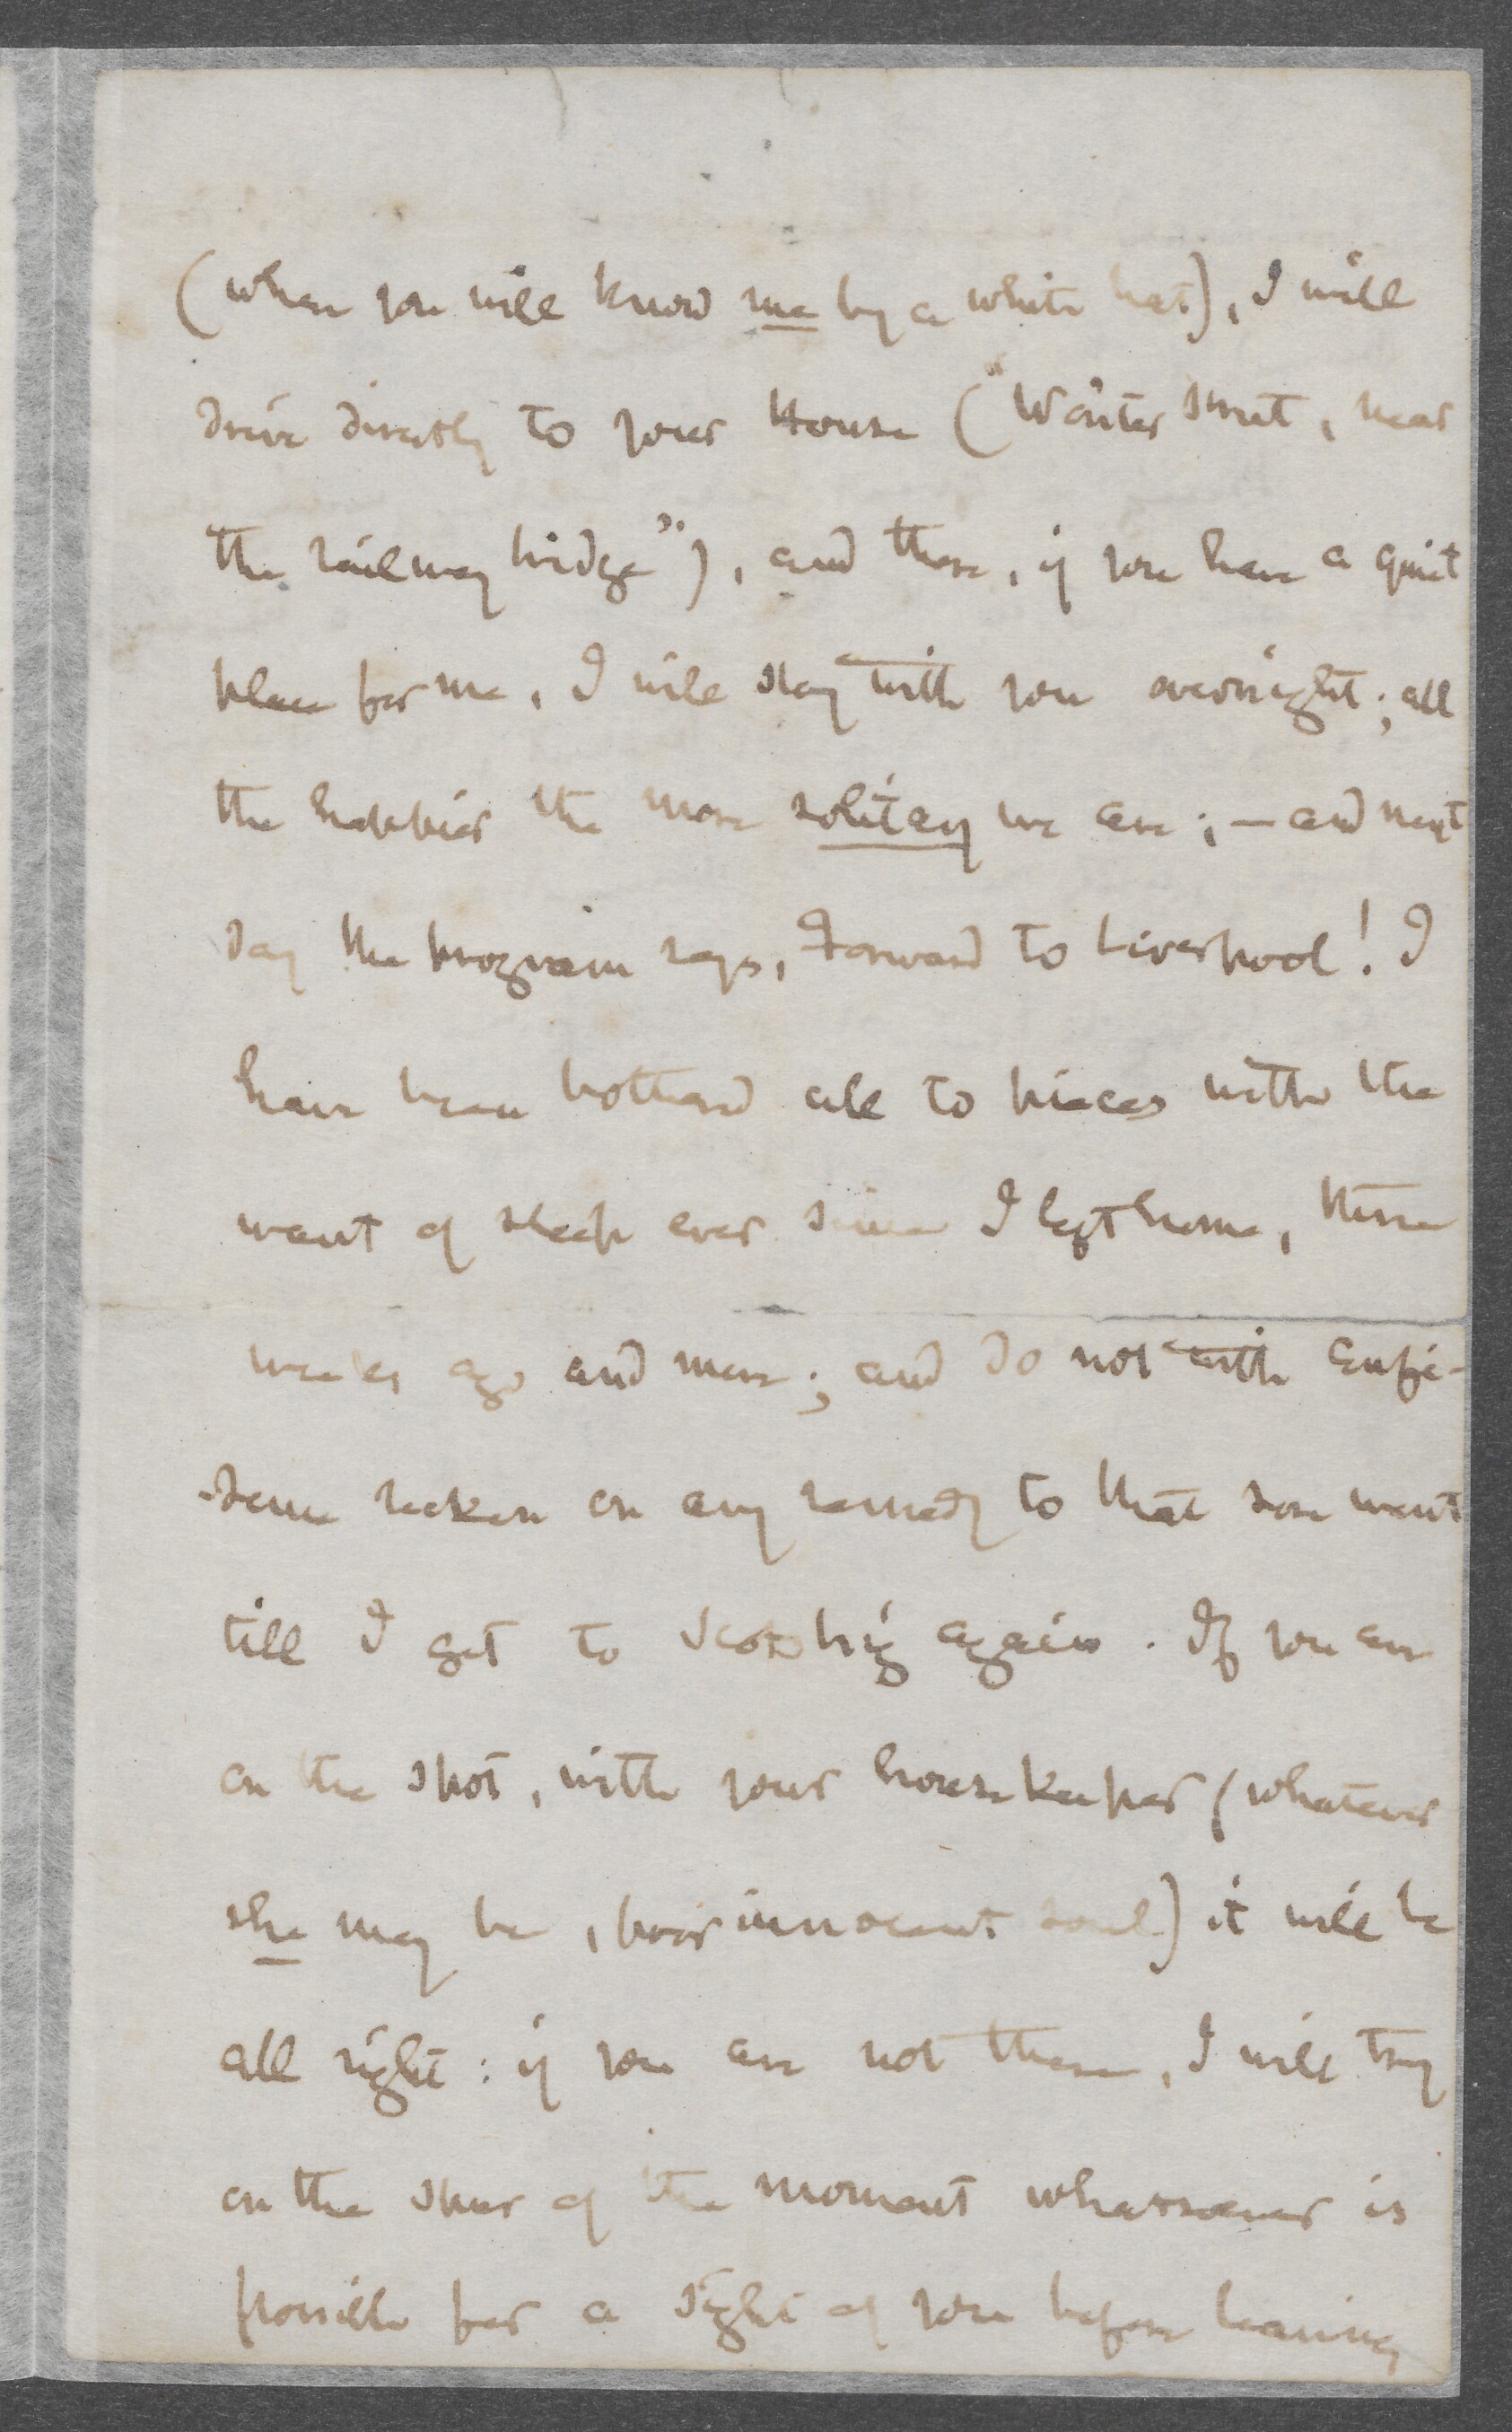 (where you will know me by a white hat), I will
drive directly to your House ("Water Street, near
the railway bridge"), and there, if you have a quiet
place for me, I will stay with you overnight; all
the happier the more solitary we are; — and next
day the program says, Forward to Liverpool! I
have been bothered all to pieces with the
want of sleep ever since I left home, three
weeks ago and more; and do not with confi-
-dence reckon on any remedy to that sore want
till I get to Scotsbrig again. If you are
on the spot, with your housekeeper (whatever
she may be, poor innocent soul) it will be
all right: if you are not there, I will try
on the spur of the moment whatsoever is
possible for a sight of you before leaving